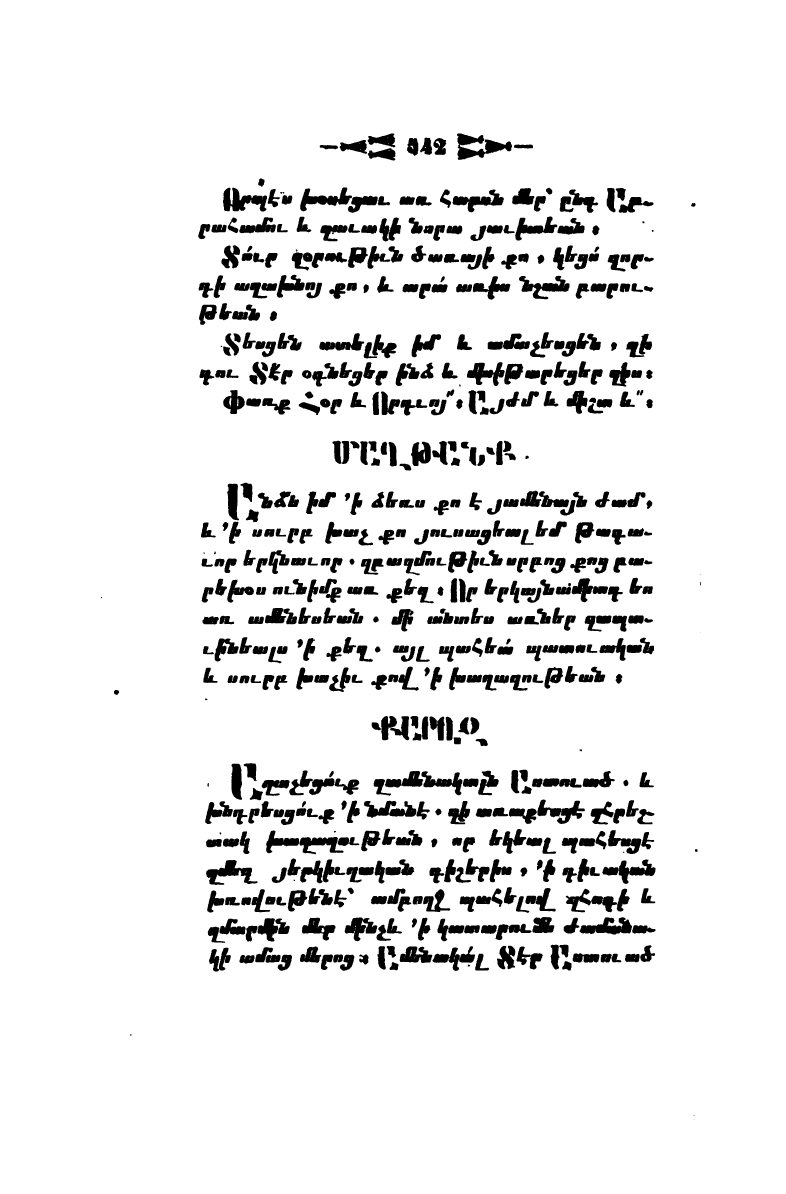 542
Որպէս խօսեցաւ առ հարսն մեր՝ ընդ Աբ-
րահամու և զաւակի նորա յաւիտեան ։
Տո՛ւր զօրութիւն ծառայի քո , կեցո՛ զոր-
դի աղախնոյ քո , և արա՛ առիս նշան բարու-
թեան ։
Տեսցեն ատելիք իմ և ամաչեսցեն , զի
դու Տէր օգնեցեր ինձ և մխիթարեցեր զիս ։
Փառք Հօր և Որդւոյ՞ ։ Այժմ և միշտ և՞ ։
ՄԱՂԹՎԱՆՔ .
Անձն իմ ՚ի ձեռս քո է յամենայն ժամ ,
և ՚ի սուրբ խաչ քո յուսացեալ եմ թագա-
ւոր երկնաւոր . զբազմութիւն սրբոց քոց բա-
րեխօս ունիմք առ քեզ ։ Որ երկայնամիտդ ես
առ ամենեսեան . մի անտես առներ զապա-
ւինեալս ՚ի քեզ . այլ պահեա՛ պատուական
և սուրբ խաչիւ քով ՚ի խաղաղութեան ։
ՔԱՐՈԶ
Աղաչեսցո՛ւք զամենակալն Աստուած . և
խնդրեսցո՛ւք ՚ի նմանէ . զի առաքեսցէ զհրեշ-
տակ խաղաղութեան , որ եկեալ պահեսցէ
զմեզ յերկիւղական գիշերիս , ՚ի դիւական
խռովութենէ՝ ամբողջ պահելով զհոգի և
զմարմին մեր մինչև ՚ի կատարումն ժամանա-
կի ամաց մերոց ։ Ամենակա՛լ Տէր Աստուած